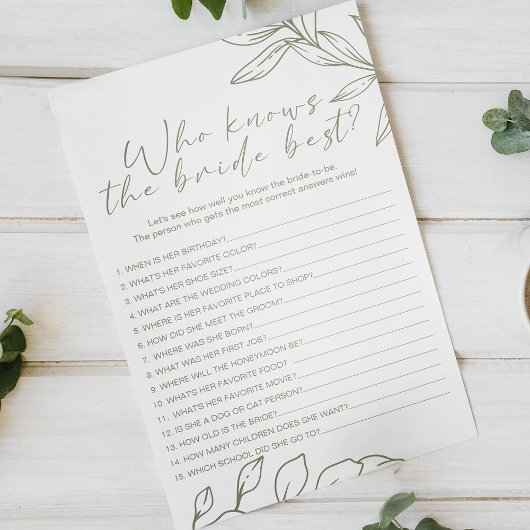 Who knows
the bride best?
Let's see how well you know the bride-to-be.
The person who gets the most correct answers wins!
1. WHEN IS HER BIRTHDAY?
2. WHAT'S HER FAVORITE COLOR?
3. WHAT'S HER SHOE SIZE?
4. WHAT ARE THE WEDDING COLORS?
5. WHERE IS HER FAVORITE PLACE TO SHOP?
6. HOW DID SHE MEET THE GROOM?
7. WHERE WAS SHE BORN?
8. WHAT WAS HER FIRST JOB?
9. WHERE WILL THE HONEYMOON BE?
10. WHAT'S HER FAVORITE FOOD?
11. WHAT'S HER FAVORITE MOVIE?
12. IS SHE A DOG OR CAT PERSON?
13. HOW OLD IS THE BRIDE?
14. HOW MANY CHILDREN DOES SHE WANT?
15. WHICH SCHOOL DID SHE GO TO?